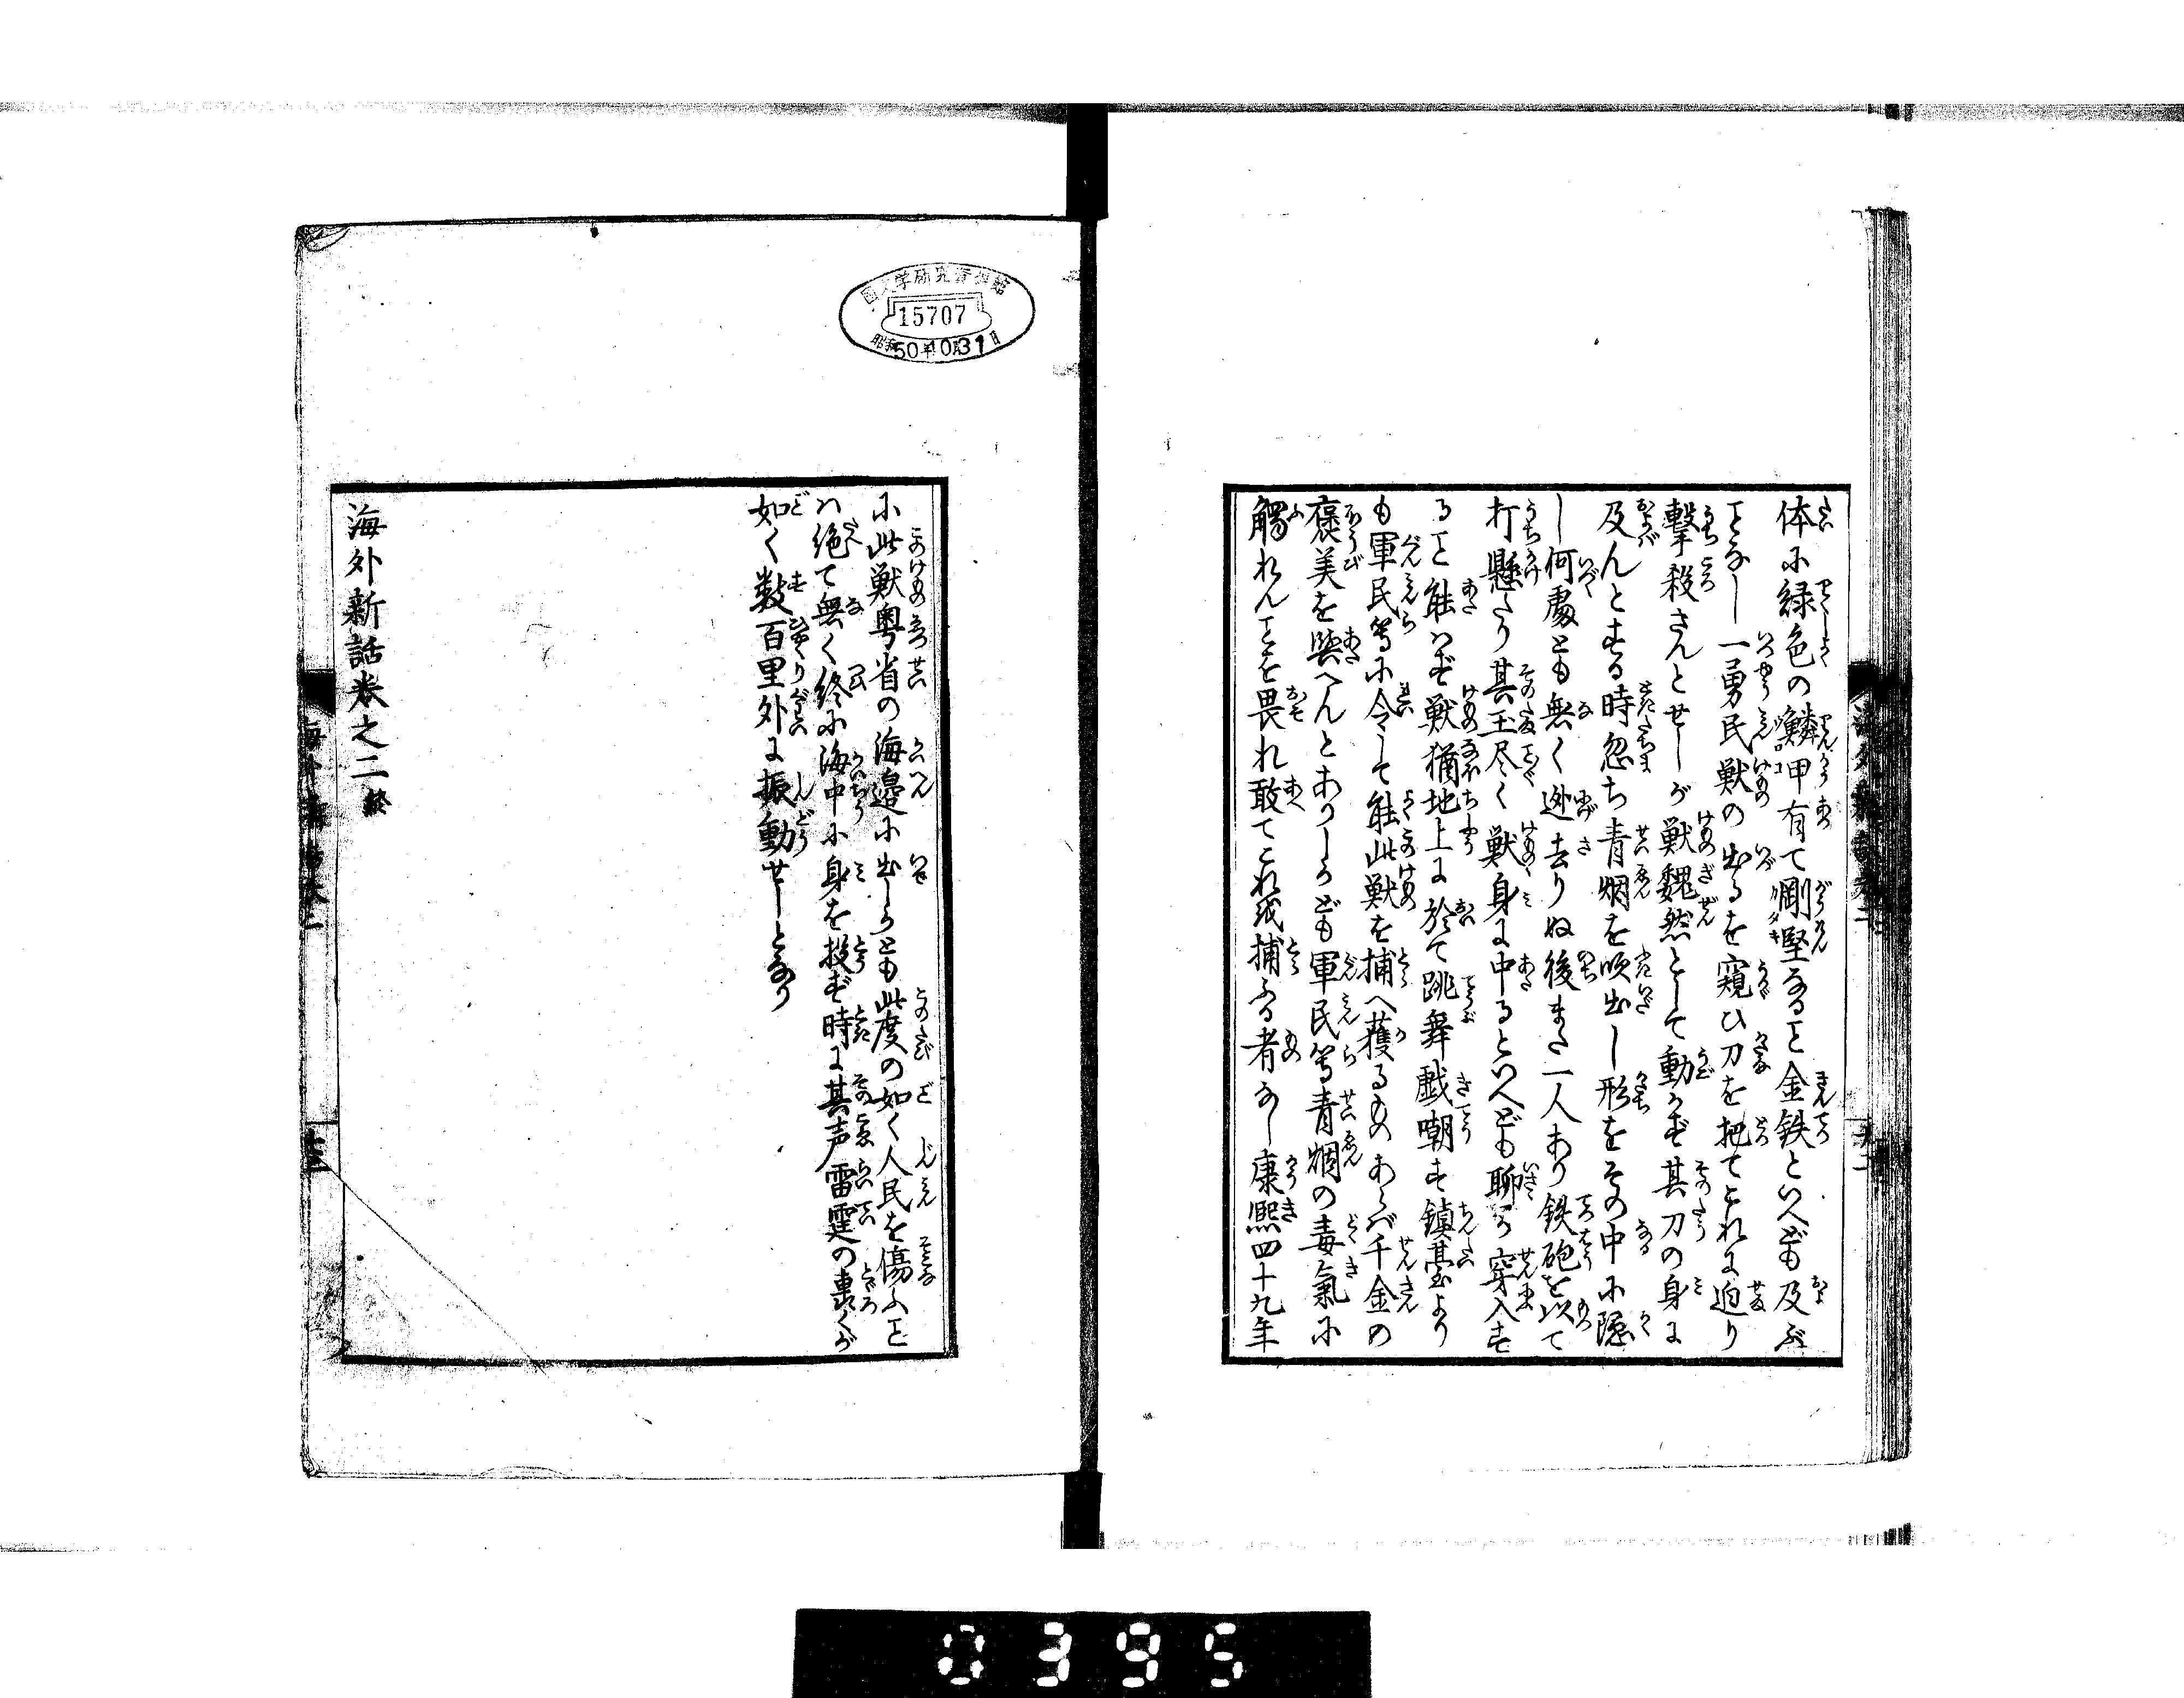 体に緑色の鱗甲有て剛堅なるヿ金鉄といへども及ばず
ヿなし一勇民獣の出るを窺ひ刀を把てこれに迫り
撃殺さんとせしが獣魏然として動かず其刀の身に
及んとする時忽ち青烟を吹出し形をその中に隠
し何處とも無く逊去りぬ後また一人あり鉄砲を以て
打懸たり其玉尽く獣身に中るといへども聊か穿入す
るヿ能はず獣猶地上に於て跳舞戯嘲す鎮臺より
も軍民等に令して能此獣を捕へ獲るものあらば千金の
褒美を與へんとありしかども軍民等青烟の毒氣に
觸れんヿを畏れ敢てこれを捕ふる者なし康熙四十九年
に此獣粤省の海邉に出しかとも此度の如く人民を傷ふヿ
は絶て無く終に海中に身を投ず時に其声雷霆の轟くが
如く数百里外に振動せしとなり
海外新話巻之二終
15707
昭和50年10月31日
0395